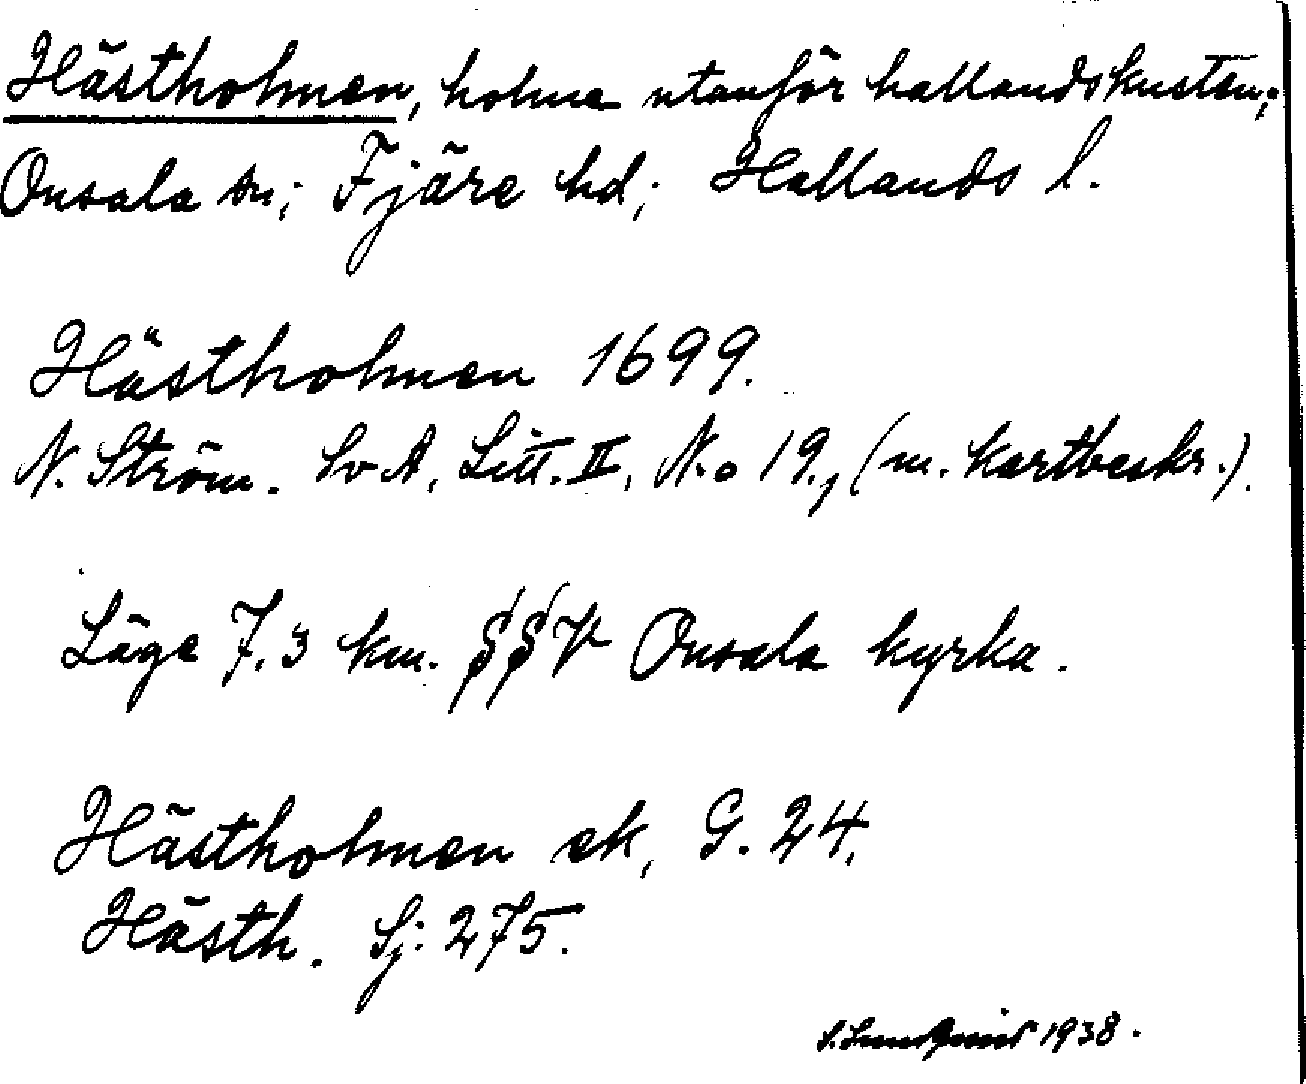 Hästholmen, holme utanför hallandskusten;
Onsala sn; Fjäre hd; Hallands l.
Hästholmen 1699.
N. Ström. Sv A, Litt. II, N.o 19, (m. kartbeskr.).
Läge 7,3 km. SSV Onsala kyrka.
Hästholmen ek, G. 24.
Hästh. Sj: 275.
S. Lundquist 1938.